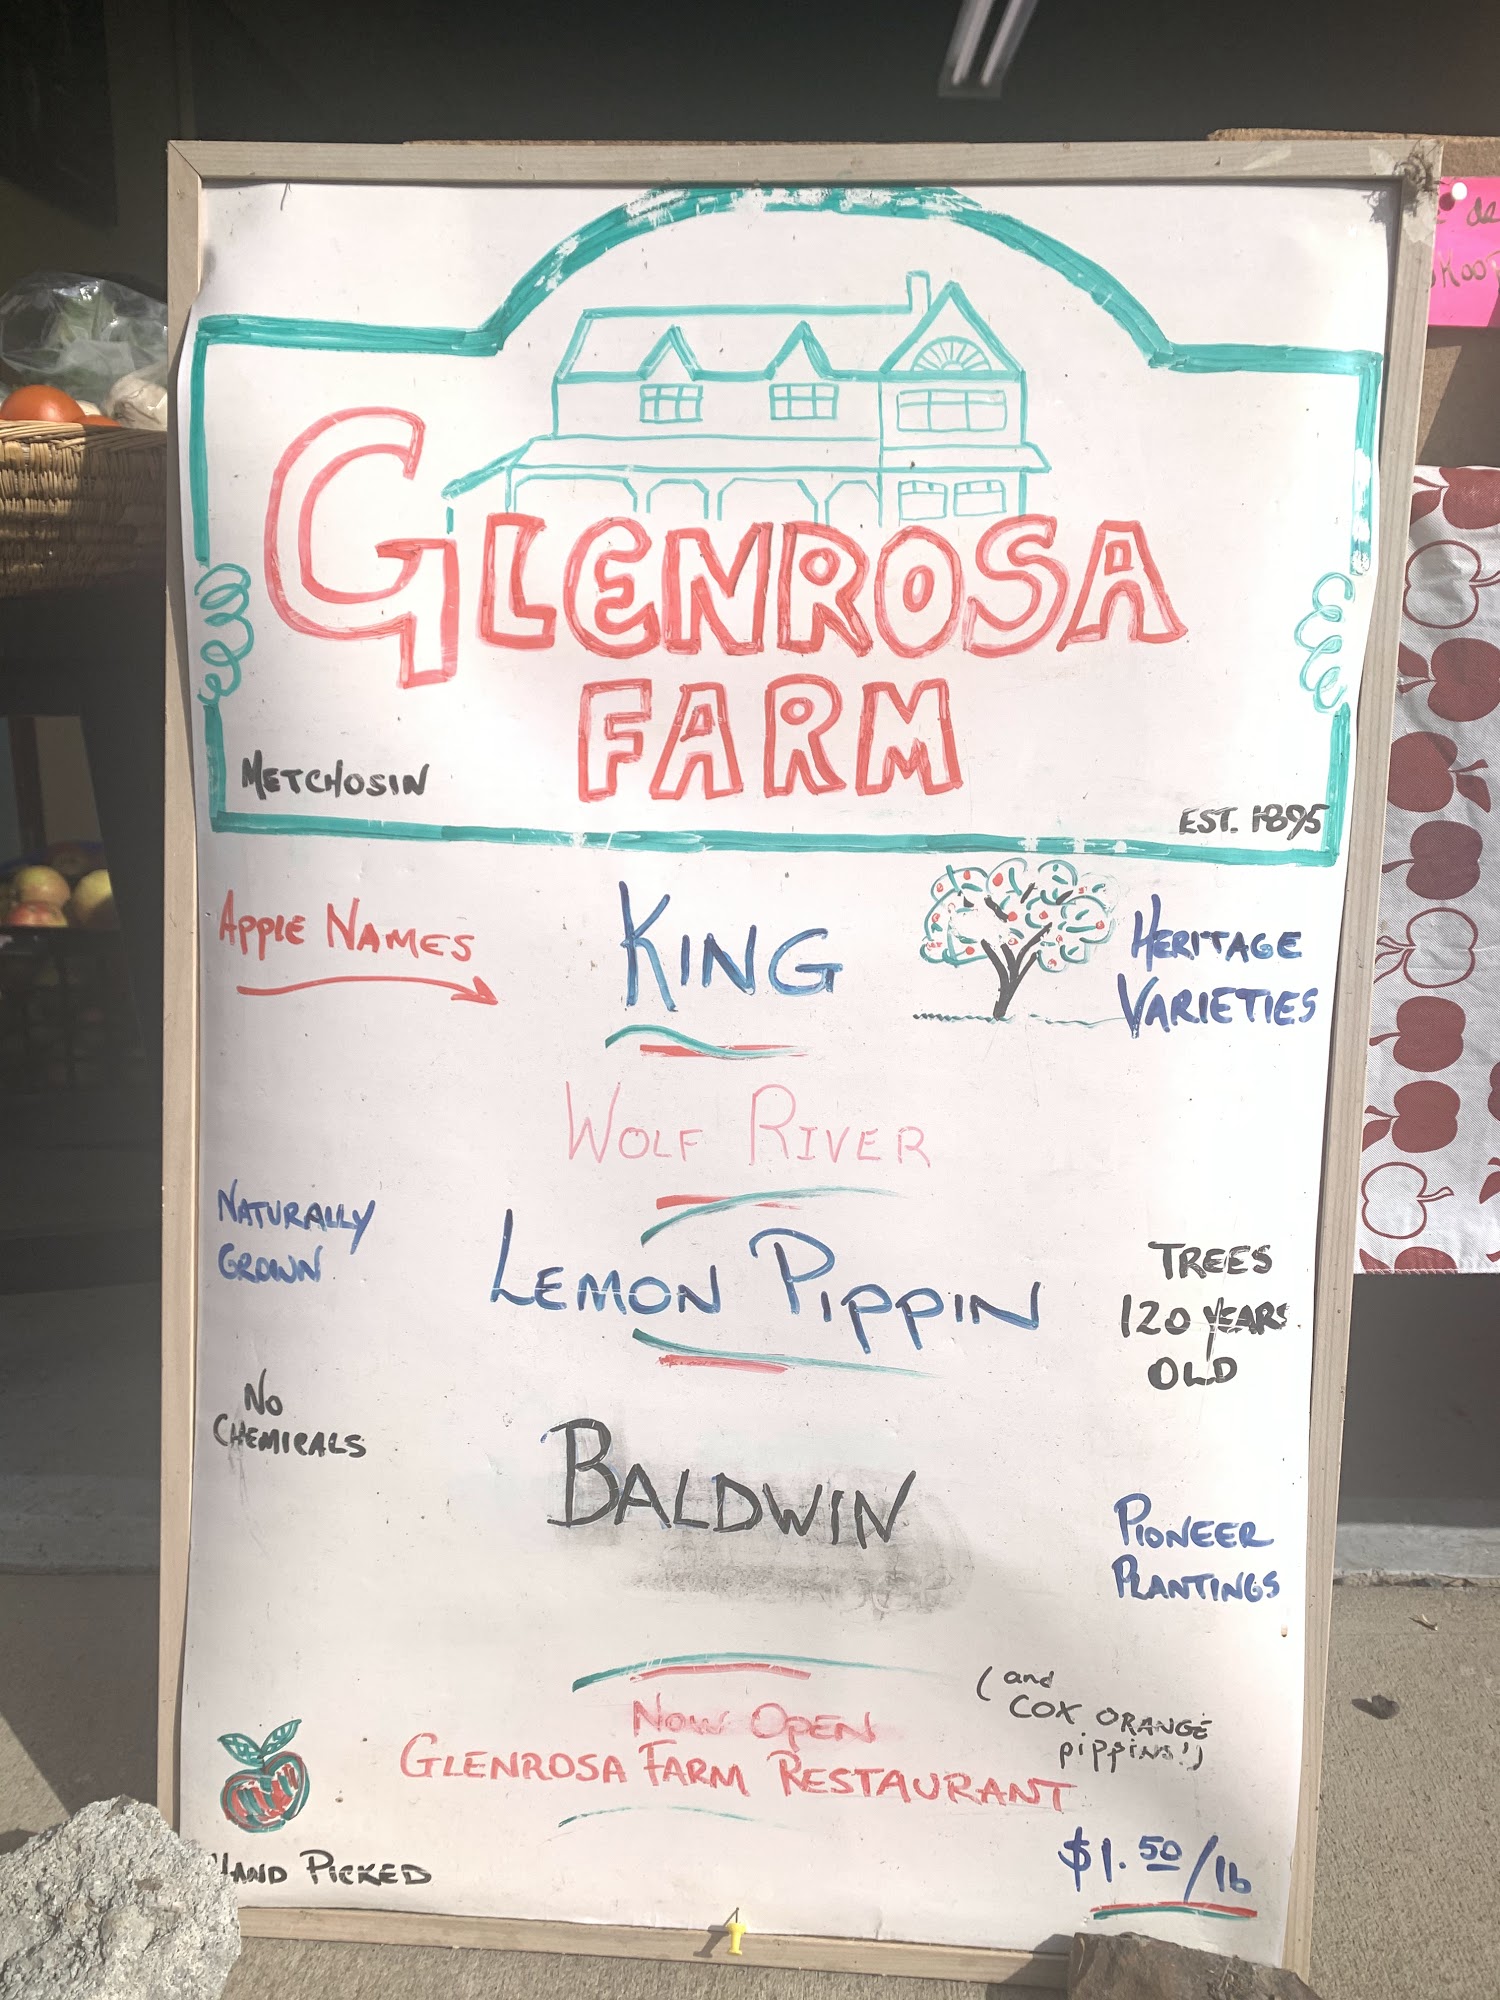 GLENROSA
FARM
METCHOSIN
EST. 1895
APPLE NAMES
KING
HERITAGE
VARIETIES
WOLF RIVER
NATURALLY
GROWN
LEMON PIPPIN
TREES
120 YEARS
OLD
NO
CHEMICALS
BALDWIN
PIONEER
PLANTINGS
(and
COX ORANGE
pippins!)
NOW OPEN
GLENROSA FARM RESTAURANT
HAND PICKED
$1.50/lb